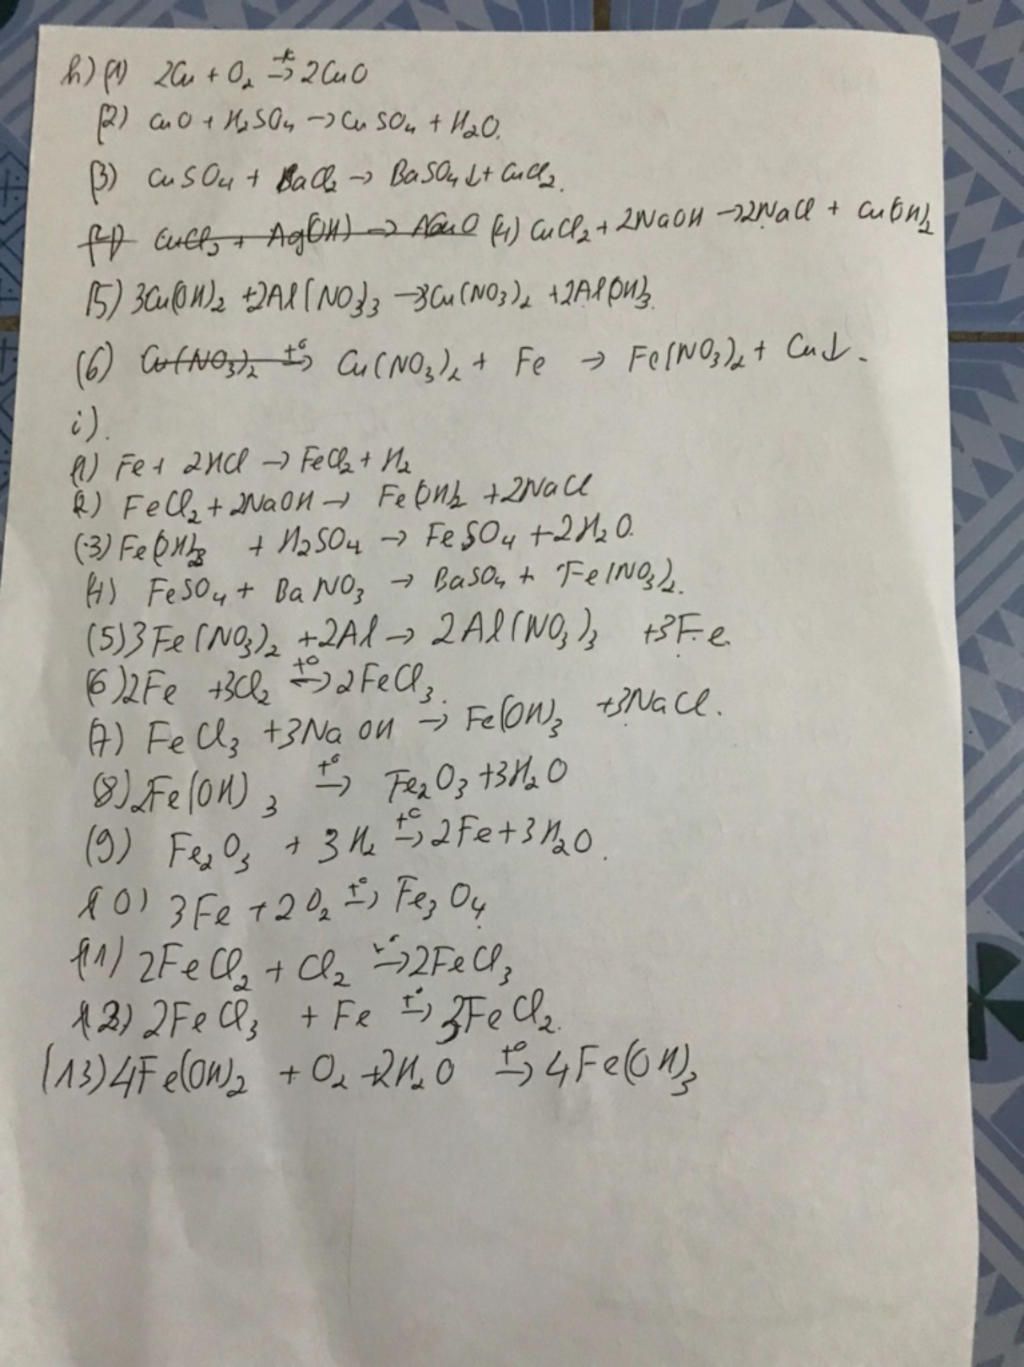 h) (1) 2Cu + O₂ →t° 2CuO
(2) CuO + H₂SO₄ → CuSO₄ + H₂O.
(3) CuSO₄ + BaCl₂ → BaSO₄↓ + CuCl₂.
(4) CuCl₂ + Ag(OH) → (4) CuCl₂ + 2NaOH → 2NaCl + Cu(OH)₂
(5) 3Cu(OH)₂ + 2Al(NO₃)₃ → 3Cu(NO₃)₂ + 2Al(OH)₃.
(6) Cu(NO₃)₂ →t° Cu(NO₃)₂ + Fe → Fe(NO₃)₂ + Cu↓.
i).
(1) Fe + 2HCl → FeCl₂ + H₂
(2) FeCl₂ + 2NaOH → Fe(OH)₂ + 2NaCl
(3) Fe(OH)₂ + H₂SO₄ → FeSO₄ + 2H₂O.
(4) FeSO₄ + BaNO₃ → BaSO₄ + Fe(NO₃)₂.
(5) 3Fe(NO₃)₂ + 2Al → 2Al(NO₃)₃ + 3Fe.
(6) 2Fe + 3Cl₂ →t° 2FeCl₃.
(7) FeCl₃ + 3NaOH → Fe(OH)₃ + 3NaCl.
(8) 2Fe(OH)₃ →t° Fe₂O₃ + 3H₂O
(9) Fe₂O₃ + 3H₂ →t° 2Fe + 3H₂O.
(10) 3Fe + 2O₂ →t° Fe₃O₄
(11) 2FeCl₂ + Cl₂ →t° 2FeCl₃
(12) 2FeCl₃ + Fe →t° 3FeCl₂.
(13) 4Fe(OH)₂ + O₂ + 2H₂O →t° 4Fe(OH)₃